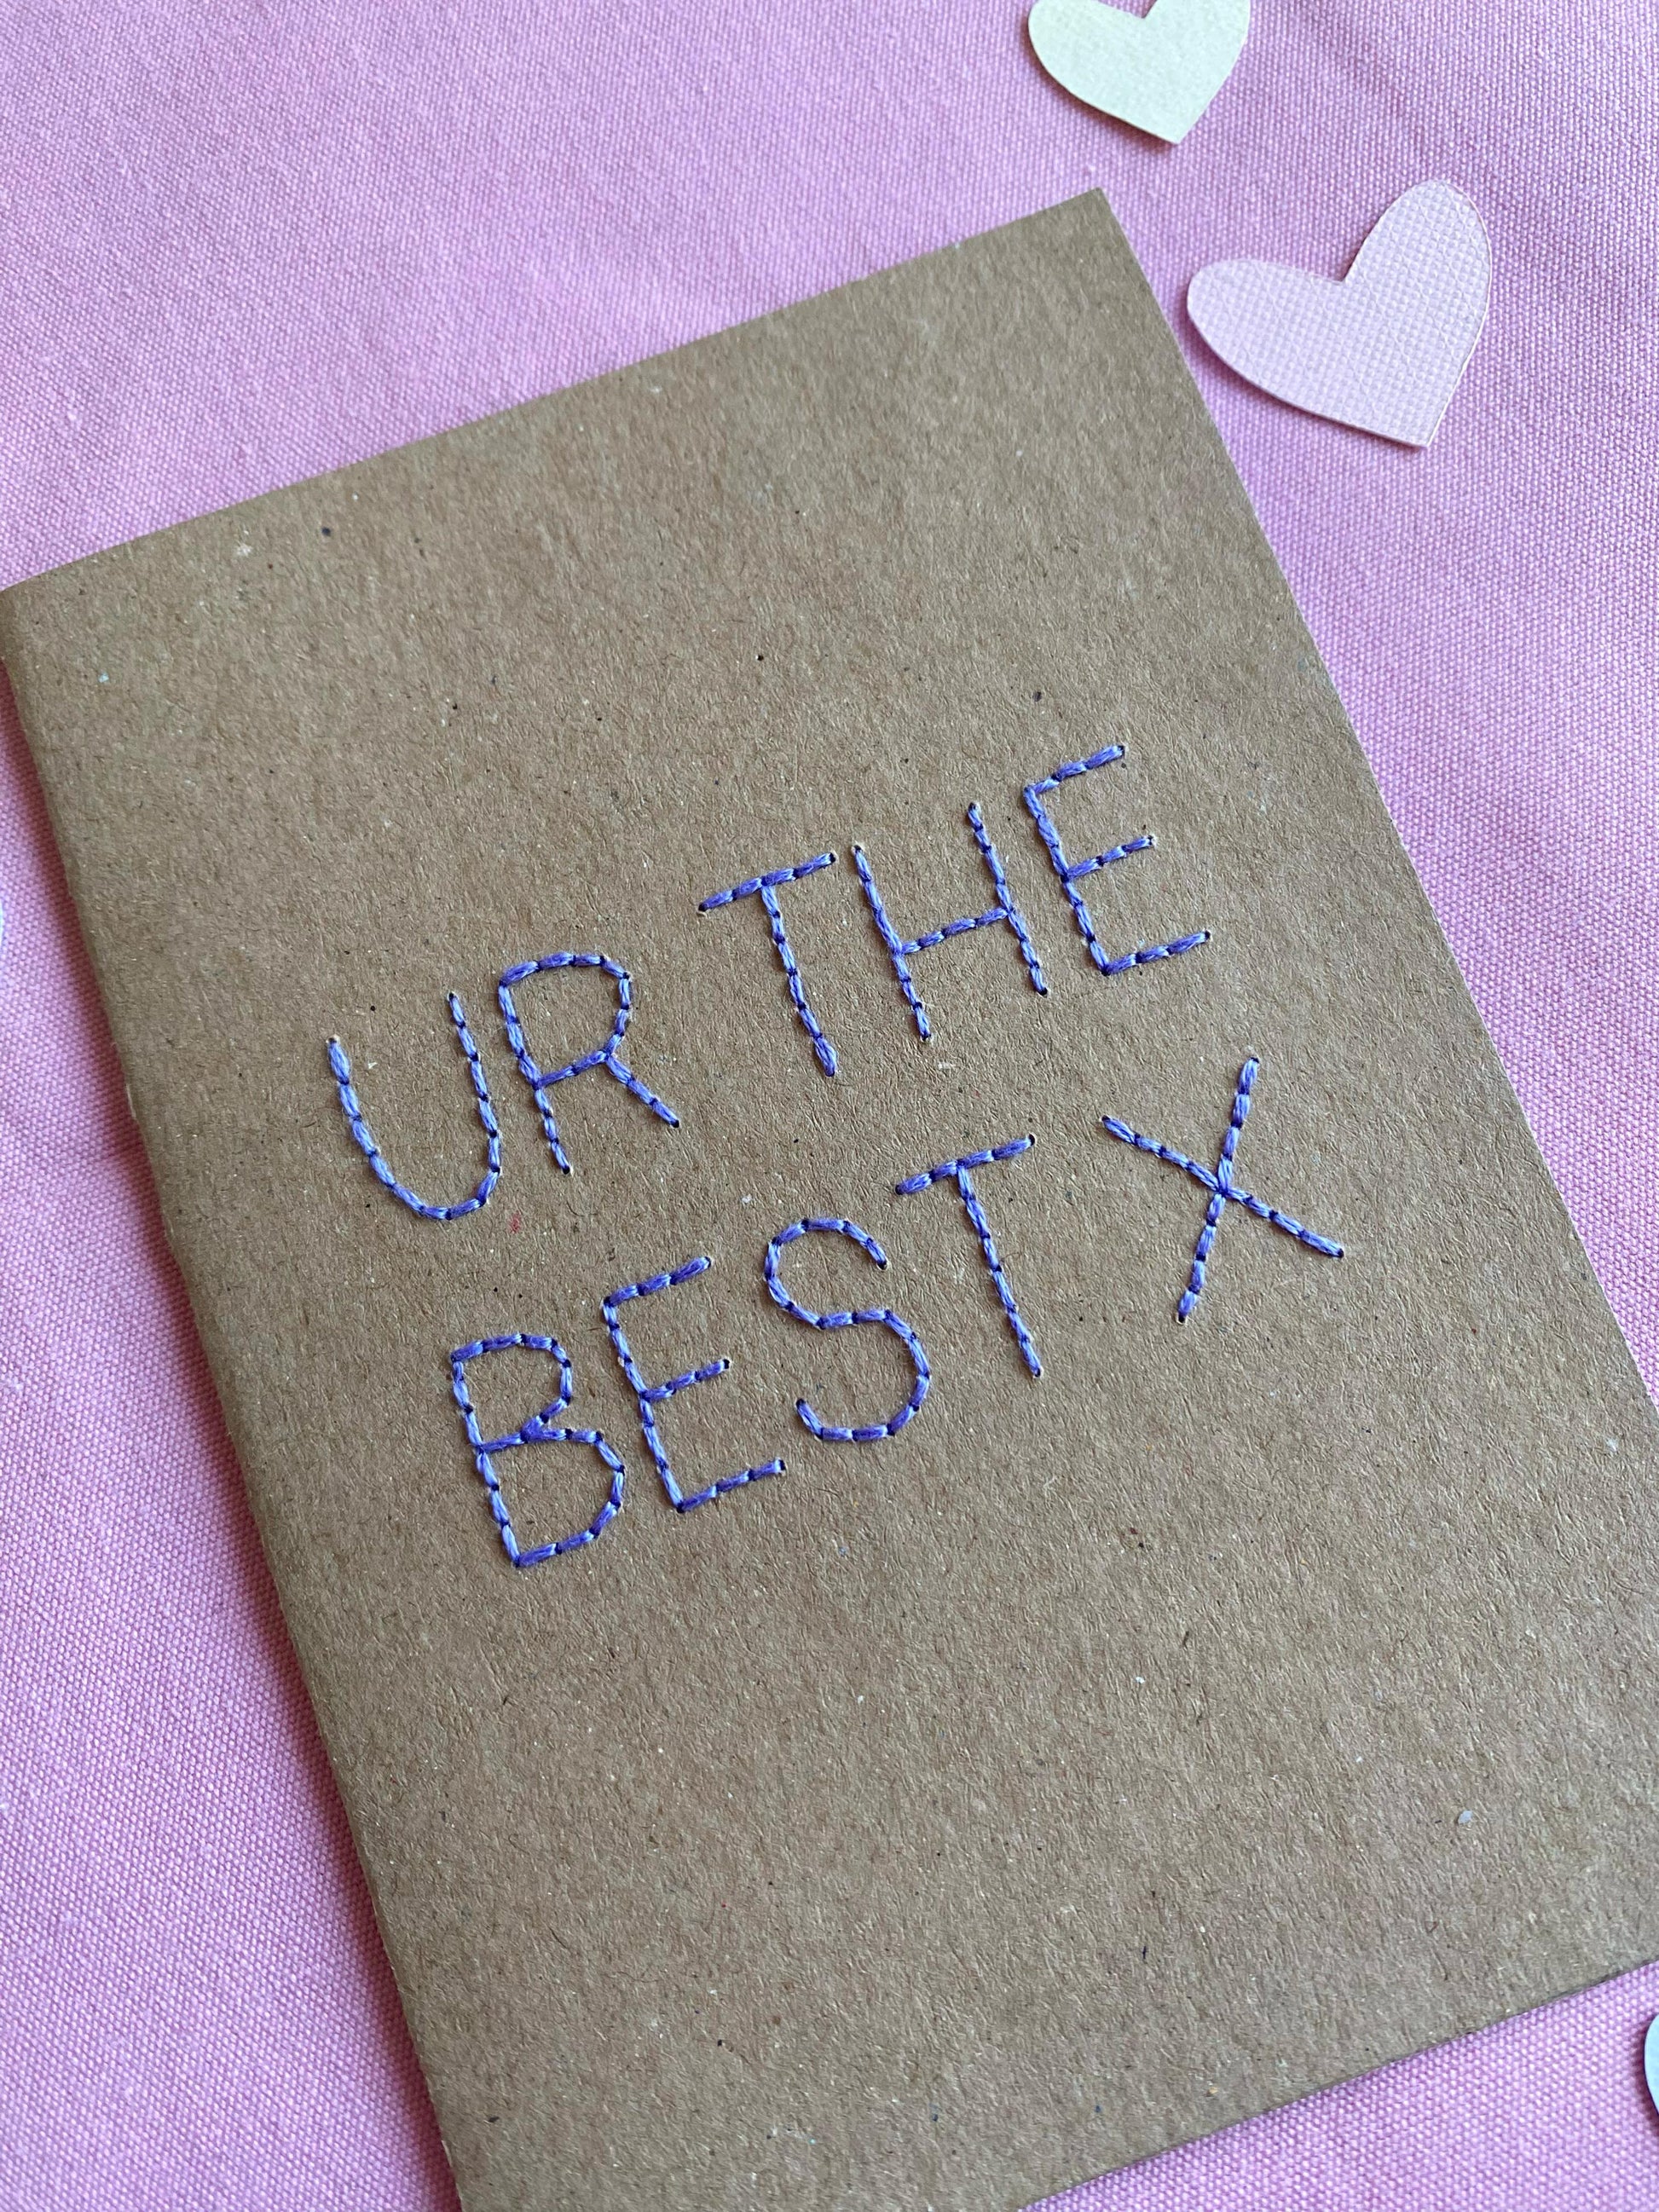 UR THE
BEST X